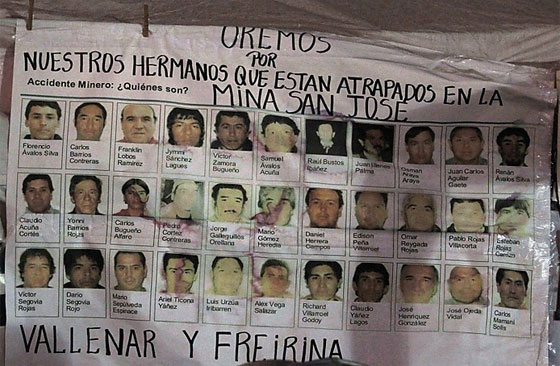 OREMOS
POR
NUESTROS HERMANOS QUE ESTAN ATRAPADOS EN LA
MINA SAN JOSE
Accidente Minero: ¿Quiénes son?
Florencio Ávalos Silva
Carlos Barrios Contreras
Franklin Lobos Ramírez
Jymmi Sánchez Lagues
Víctor Zamora Bugueño
Samuel Ávalos Acuña
Raúl Bustos Ibáñez
Juan Illanes Palma
Osman Araya Araya
Juan Carlos Aguilar Gaete
Renán Ávalos Silva
Claudio Acuña Cortés
Yonni Barrios Rojas
Carlos Bugueño Alfaro
Pedro Cortez Contreras
Jorge Galleguillos Orellana
Mario Gómez Heredia
Daniel Herrera Campos
Edison Peña Villarroel
Omar Reygada Rojas
Pablo Rojas Villacorta
Esteban Rojas
Víctor Segovia Rojas
Darío Segovia Rojo
Mario Sepúlveda Espinace
Ariel Ticona Yáñez
Luis Urzúa Iribarren
Alex Vega Salazar
Richard Villarroel Godoy
Claudio Yáñez Lagos
José Henríquez González
José Ojeda Vidal
Carlos Mamani Solis
VALLENAR Y FREIRINA